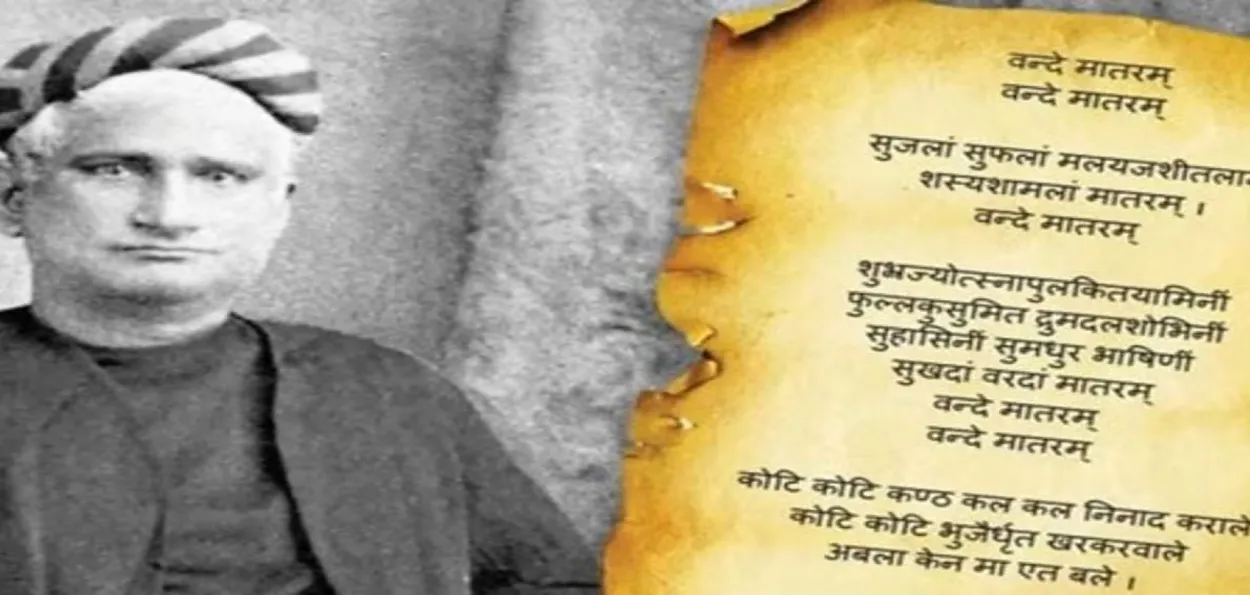 वन्दे मातरम्
वन्दे मातरम्
सुजलां सुफलां मलयजशीतलाम
शस्यशामलां मातरम् ।
वन्दे मातरम्
शुभ्रज्योत्स्नापुलकितयामिनीं
फुल्लकुसुमित द्रुमदलशोभिनीं
सुहासिनीं सुमधुर भाषिणीं
सुखदां वरदां मातरम्
वन्दे मातरम्
वन्दे मातरम्
कोटि कोटि कण्ठ कल कल निनाद कराले
कोटि कोटि भुजैर्धृत खरकरवाले
अबला केन मा एत बले ।